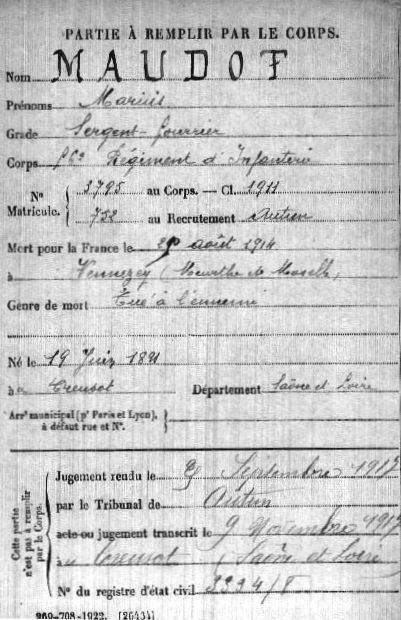 PARTIE À REMPLIR PAR LE CORPS.
Nom MAUDOT
Prénoms Marius
Grade Sergent-fourrier
Corps 56e Régiment d'Infanterie
N° Matricule. 3795 au Corps. — Cl. 1911
752 au Recrutement Autun
Mort pour la France le août 1914
à Vennezey (Meurthe et Moselle)
Genre de mort Tué à l'ennemi
Né le 19 Juin
à Creusot Département Saône et Loire
Arrt municipal (pr Paris et Lyon), à défaut rue et N°.
Cette partie n'est pas à remplir par le Corps.
Jugement rendu le Septembre 1917
par le Tribunal de Autun
acte ou jugement transcrit le 9 Novembre 1917
à Creusot (Saône et Loire
N° du registre d'état civil
269-708-1922. [26434]